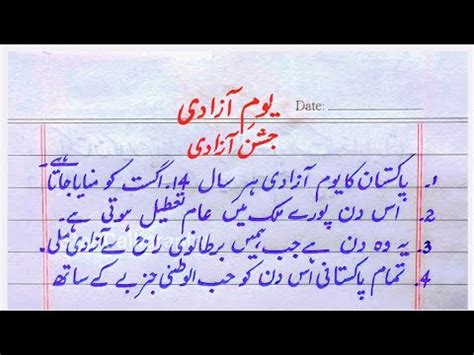 یومِ آزادی
Date:
جشن آزادی
1۔ پاکستان کا یوم آزادی ہر سال 14۔ اگست کو منایا جاتا ہے۔
2۔ اس دن پورے ملک میں عام تعطیل ہوتی ہے۔
3۔ یہ وہ دن ہے جب ہمیں برطانوی راج سے آزادی ملی۔
4۔ تمام پاکستانی اس دن کو حب الوطنی جزبے کے ساتھ